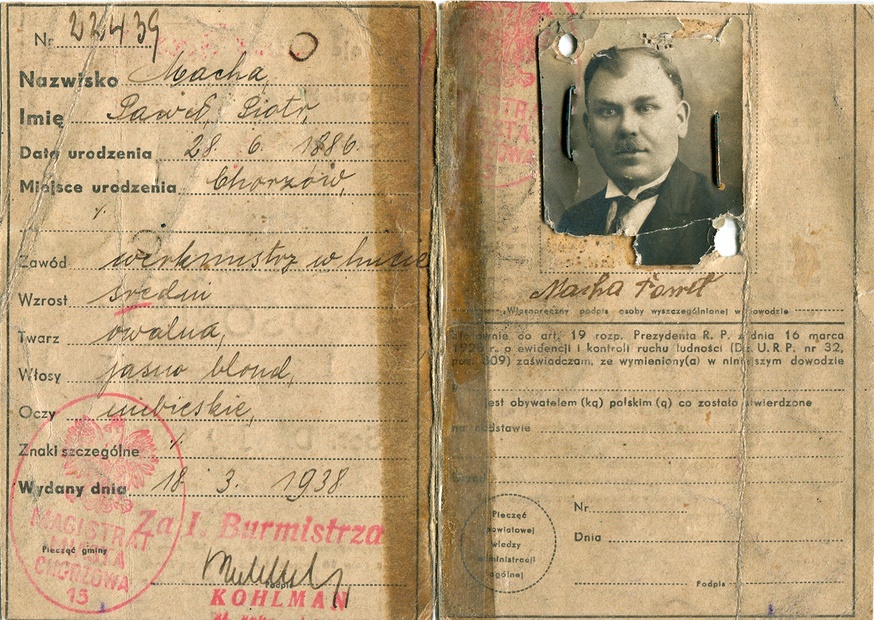 Nr. 22439
Nazwisko Macha,
Imię Paweł, Piotr,
Data urodzenia 28. 6. 1886.
Miejsce urodzenia Chorzów,
%
Zawód werkmistrz w hucie
Wzrost średni
Twarz owalna,
Włosy jasno blond,
Oczy niebieskie,
Znaki szczególne %
Wydany dnia 18. 3. 1938
Za I. Burmistrza
MAGISTRAT
MIASTA
CHORZOWA
15
Pieczęć gminy
Podpis
KOHLMAN
Macha Paweł
Własnoręczny podpis osoby wyszczególnionej w dowodzie
art. 19 rozp. Prezydenta R. P. z dnia 16 marca
r. o ewidencji i kontroli ruchu ludności (Dz. U. R. P. nr 32,
poz. 309) zaświadczam, że wymieniony(a) w niniejszym dowodzie
jest obywatelem (ką) polskim (ą) co zostało stwierdzone
na podstawie
Urząd
Nr.
Dnia
Pieczęć
powiatowej
władzy
administracji
ogólnej
Podpis